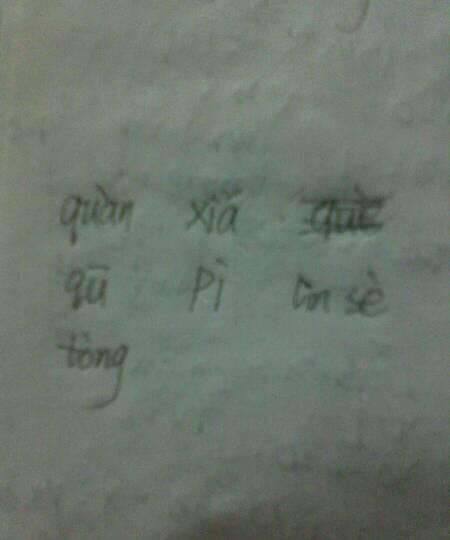 quàn xiá
qū pì lìn sè
tòng